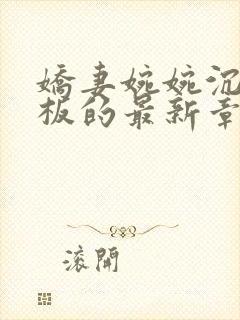 嬌妻婉婉沉
板的最新章
滾開